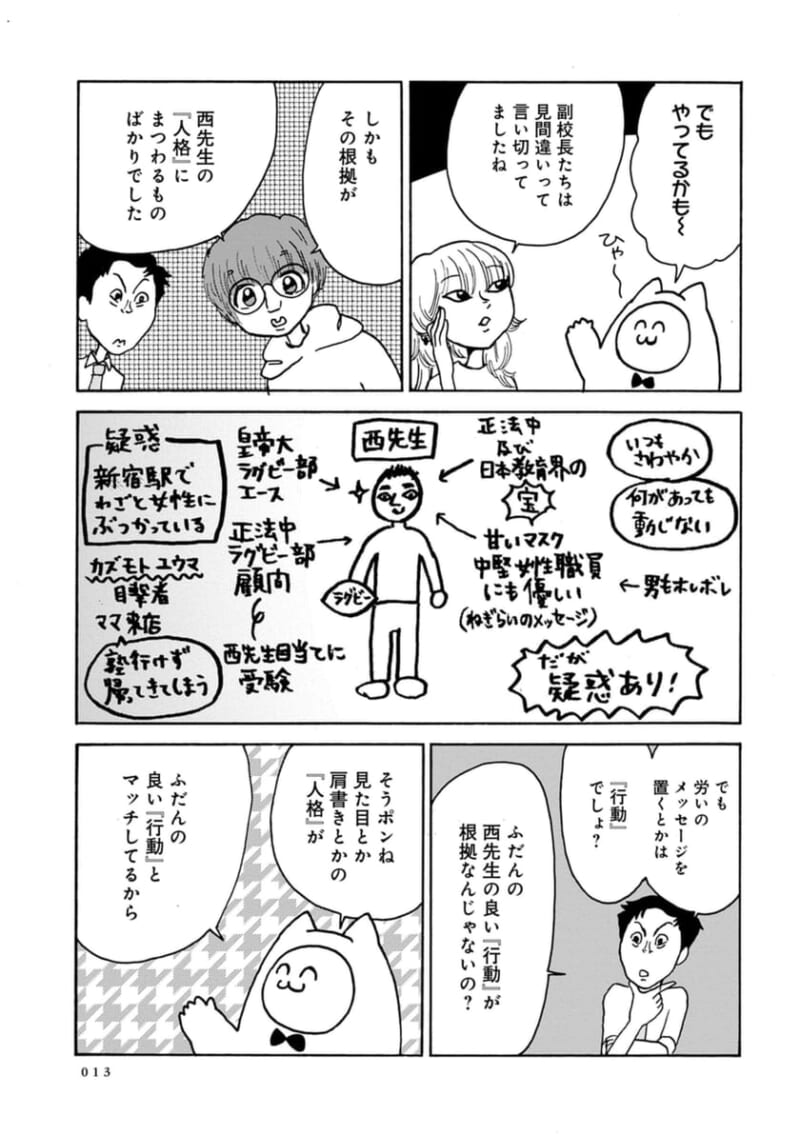 でも
やってるかも〜
ひゃ〜
副校長たちは
見間違いって
言い切って
ましたね
しかも
その根拠が
西先生の
『人格』に
まつわるもの
ばかりでした
西先生
正法中
及び
日本教育界の
宝
いつも
さわやか
何があっても
動じない
甘いマスク
中堅女性職員
にも優しい
(ねぎらいのメッセージ)
←男もホレボレ
だが
疑惑あり!
皇帝大
ラグビー部
エース
正法中
ラグビー部
顧問
ラグビー
西先生目当てに
受験
疑惑
新宿駅で
わざと女性に
ぶつかっている
カズモトユウマ
目撃者
ママ来店
塾行けず
帰ってきてしまう
でも
労いの
メッセージを
置くとかは
『行動』
でしょ?
ふだんの
西先生の良い『行動』が
根拠なんじゃないの?
そうポンね
見た目とか
肩書きとかの
『人格』が
ふだんの
良い『行動』と
マッチしてるから
013